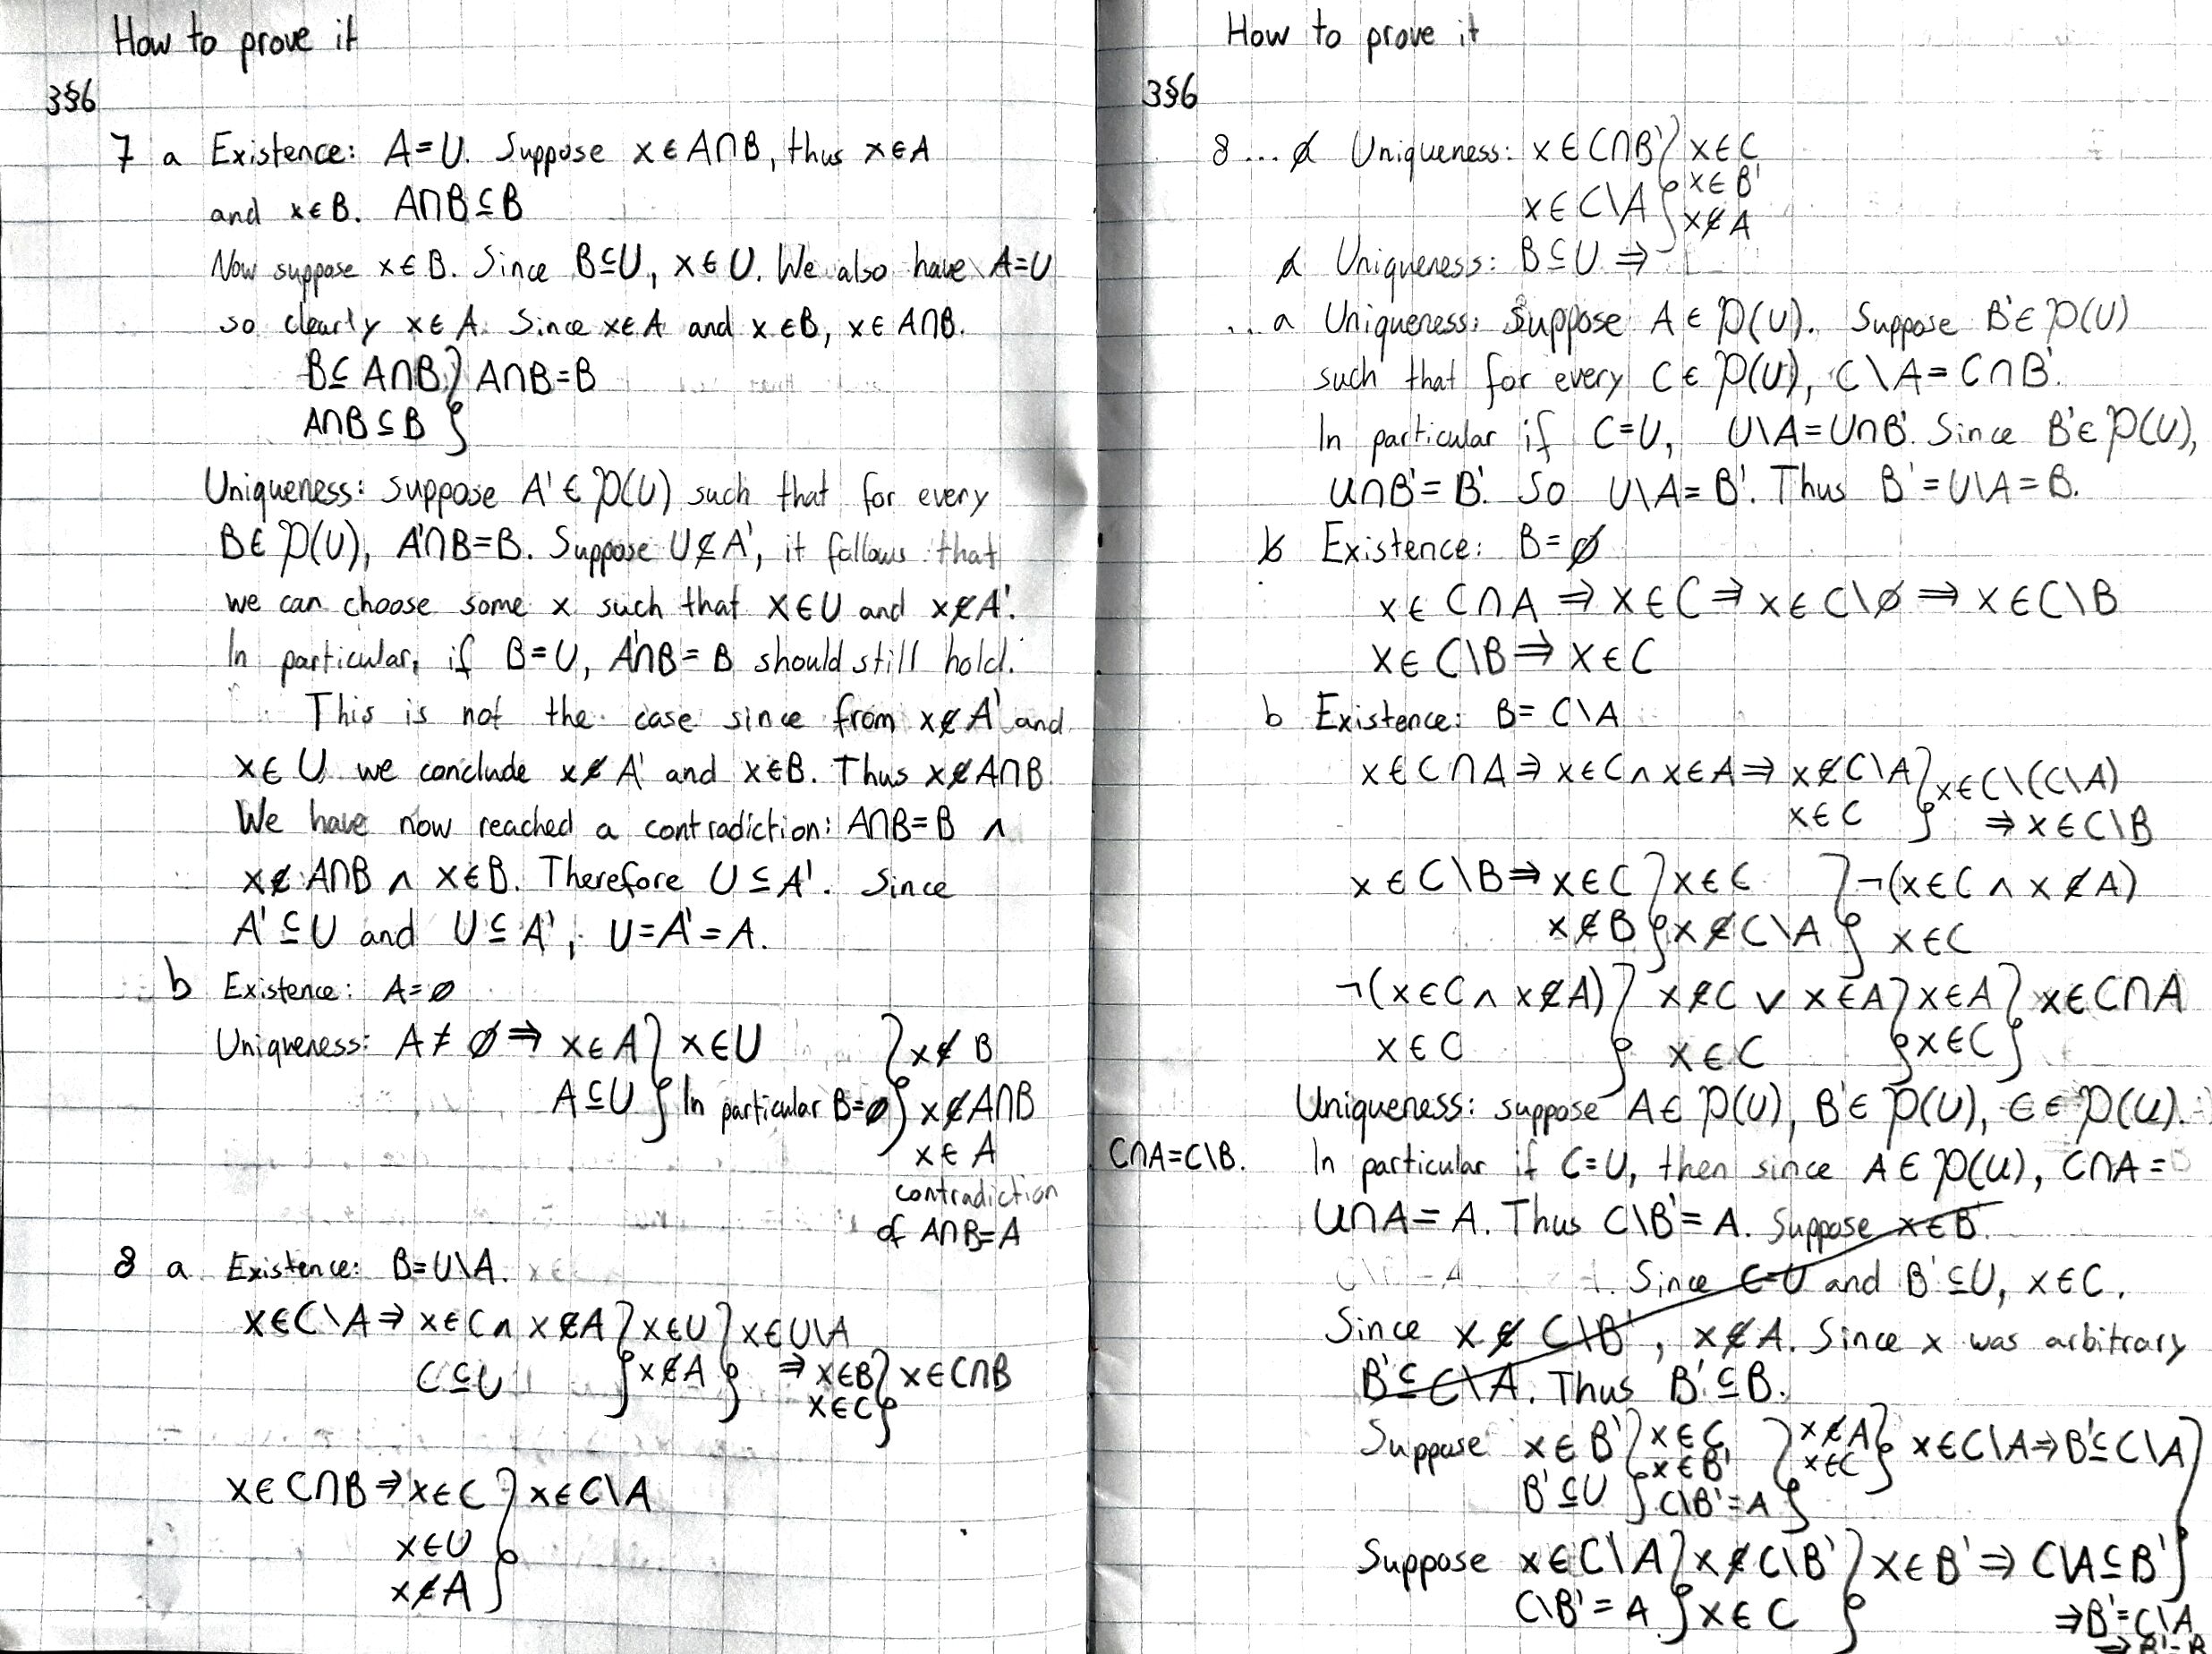 How to prove it
3§6
7 a Existence: A=U. Suppose x∈A∩B, thus x∈A
and x∈B. A∩B⊆B
Now suppose x∈B. Since B⊆U, x∈U. We also have A=U
so clearly x∈A. Since x∈A and x∈B, x∈A∩B.
B⊆A∩B } A∩B=B
A∩B⊆B
Uniqueness: suppose A'∈P(U) such that for every
B∈P(U), A'∩B=B. Suppose U⊈A', it follows that
we can choose some x such that x∈U and x∉A'.
In particular, if B=U, A'∩B=B should still hold.
This is not the case since from x∉A' and
x∈U we conclude x∉A' and x∈B. Thus x∉A∩B.
We have now reached a contradiction: A∩B=B ∧
x∉A∩B ∧ x∈B. Therefore U⊆A'. Since
A'⊆U and U⊆A', U=A'=A.
b Existence: A=∅
Uniqueness: A≠∅ ⇒ x∈A } x∈U } x∉B
A⊆U } In particular B=∅ } x∉A∩B
x∈A
contradiction
of A∩B=A
8 a Existence: B=U\A.
x∈C\A ⇒ x∈C ∧ x∉A } x∈U } x∈U\A
C⊆U } x∉A } ⇒ x∈B } x∈C∩B
x∈C
x∈C∩B ⇒ x∈C } x∈C\A
x∈U
x∉A
How to prove it
3§6
8 ... a Uniqueness: x∈C∩B' } x∈C
x∈B'
x∈C\A } x∉A
a Uniqueness: B⊆U ⇒
... a Uniqueness: Suppose A∈P(U). Suppose B'∈P(U)
such that for every C∈P(U), C\A=C∩B'.
In particular if C=U, U\A=U∩B'. Since B'∈P(U),
U∩B'=B'. So U\A=B'. Thus B'=U\A=B.
b Existence: B=∅
x∈C∩A ⇒ x∈C ⇒ x∈C\∅ ⇒ x∈C\B
x∈C\B ⇒ x∈C
b Existence: B=C\A
x∈C∩A ⇒ x∈C ∧ x∈A ⇒ x∉C\A } x∈C\(C\A)
x∈C } ⇒ x∈C\B
x∈C\B ⇒ x∈C } x∈C } ¬(x∈C ∧ x∉A)
x∉B } x∉C\A } x∈C
¬(x∈C ∧ x∉A) } x∉C ∨ x∈A } x∈A } x∈C∩A
x∈C } x∈C } x∈C }
Uniqueness: suppose A∈P(U), B'∈P(U), C∈P(U).
C∩A=C\B. In particular if C=U, then since A∈P(U), C∩A=
U∩A=A. Thus C\B'=A. Suppose x∈B'.
Since C=U and B'⊆U, x∈C.
Since x∉C\B', x∉A. Since x was arbitrary
B'⊆C\A. Thus B'⊆B.
Suppose x∈B' } x∈C } x∉A } x∈C\A ⇒ B'⊆C\A
x∈B' x∈C
B'⊆U } C\B'=A }
Suppose x∈C\A } x∉C\B' } x∈B' ⇒ C\A⊆B'
C\B'=A } x∈C } ⇒ B'=C\A
⇒ B'=B